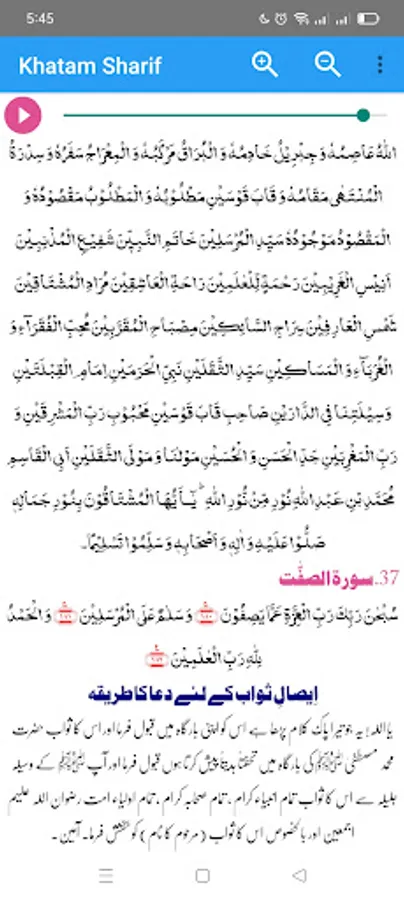 5:45
Khatam Sharif
اللهُ عَاصِمُهٗ وَجِبْرِيْلُ خَادِمُهٗ وَالْبُرَاقُ مَرْكَبُهٗ وَالْمِعْرَاجُ سَفَرُهٗ وَسِدْرَةُ
الْمُنْتَهٰى مَقَامُهٗ وَقَابَ قَوْسَيْنِ مَطْلُوْبُهٗ وَالْمَطْلُوْبُ مَقْصُوْدُهٗ وَ
الْمَقْصُوْدُ مَوْجُوْدُهٗ سَيِّدِ الْمُرْسَلِيْنَ خَاتَمِ النَّبِيِّنَ شَفِيْعِ الْمُذْنِبِيْنَ
اَنِيْسِ الْغَرِيْبِيْنَ رَحْمَةٍ لِّلْعٰلَمِيْنَ رَاحَةِ الْعَاشِقِيْنَ مُرَادِ الْمُشْتَاقِيْنَ
شَمْسِ الْعَارِفِيْنَ سِرَاجِ السَّالِكِيْنَ مِصْبَاحِ الْمُقَرَّبِيْنَ مُحِبِّ الْفُقَرَآءِ وَ
الْغُرَبَآءِ وَالْمَسَاكِيْنَ سَيِّدِ الثَّقَلَيْنِ نَبِيِّ الْحَرَمَيْنِ اِمَامِ الْقِبْلَتَيْنِ
وَسِيْلَتِنَا فِي الدَّارَيْنِ صَاحِبِ قَابَ قَوْسَيْنِ مَحْبُوْبِ رَبِّ الْمَشْرِقَيْنِ وَ
رَبِّ الْمَغْرِبَيْنِ جَدِّ الْحَسَنِ وَالْحُسَيْنِ مَوْلٰنَا وَمَوْلَى الثَّقَلَيْنِ اَبِي الْقَاسِمِ
مُحَمَّدِ بْنِ عَبْدِ اللهِ نُوْرٍ مِّنْ نُّوْرِ اللهِ ؕ يٰٓاَيُّهَا الْمُشْتَاقُوْنَ بِنُوْرِ جَمَالِهٖ
صَلُّوْا عَلَيْهِ وَاٰلِهٖ وَاَصْحَابِهٖ وَسَلِّمُوْا تَسْلِيْمًا۔
37.سورة الصفّٰت
سُبْحٰنَ رَبِّكَ رَبِّ الْعِزَّةِ عَمَّا يَصِفُوْنَ ﴿۱۸۰﴾ وَسَلٰمٌ عَلَى الْمُرْسَلِيْنَ ﴿۱۸۱﴾ وَالْحَمْدُ
لِلّٰهِ رَبِّ الْعٰلَمِيْنَ ﴿۱۸۲﴾
ایصالِ ثواب کے لئے دعا کا طریقہ
یااللہ! یہ جو تیرا پاک کلام پڑھا ہے اس کو اپنی بارگاہ میں قبول فرما اور اس کا ثواب حضرت
محمد مصطفٰی ﷺ کی بارگاہ میں تحفتاً ہدیتاً پیش کرتا ہوں قبول فرما اور آپ ﷺ کے وسیلہ
جلیلہ سے اس کا ثواب تمام انبیاء کرام، تمام صحابہ کرام، تمام اولیاء امت رضوان اللہ علیہم
اجمعین اور بالخصوص اس کا ثواب (مرحوم کا نام) کو بخشش فرما۔ آمین۔